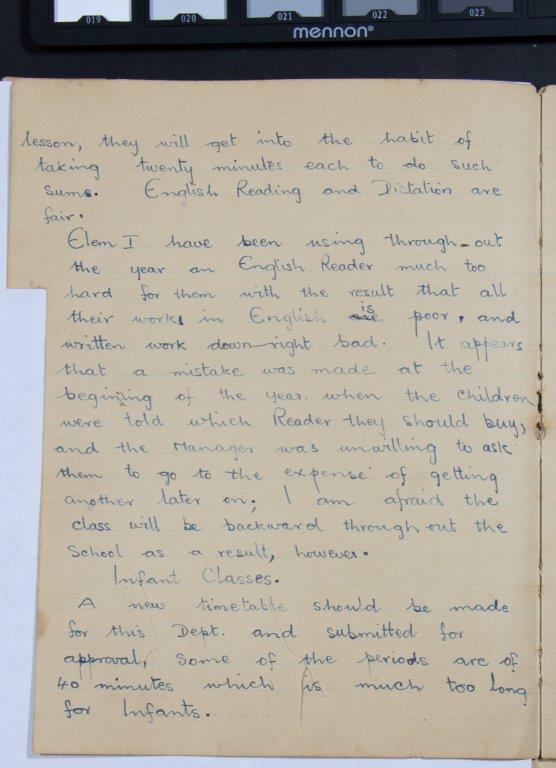 019 020 021 022 023
mennon®
lesson, they will get into the habit of
taking twenty minutes each to do such
sums. English Reading and Dictation are
fair.
Elem I have been using through-out
the year an English Reader much too
hard for them with the result that all
is
their work in English are poor, and
written work down-right bad. It appears
that a mistake was made at the
begining of the year when the children
were told which Reader they should buy,
and the Manager was unwilling to ask
them to go to the expense of getting
another later on; I am afraid the
class will be backward through out the
School as a result, however.
Infant Classes.
A new timetable should be made
for this Dept. and submitted for
approval, Some of the periods are of
40 minutes which is much too long
for Infants.